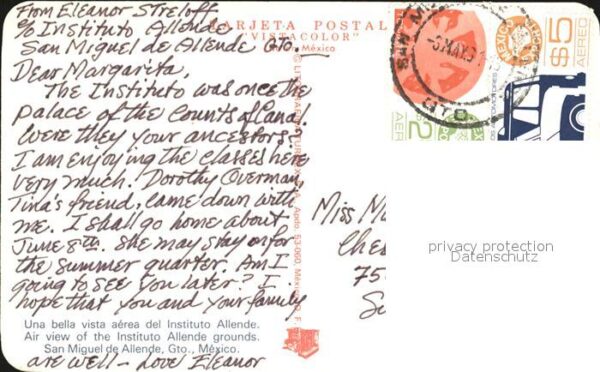 From Eleanor Streloff
℅ Instituto Allende
San Miguel de Allende Gto.
Dear Margarita,
The Instituto was once the
Palace of the Counts of Canal
Were they your ancestors?
I am enjoying the classes here
very much. Dorothy Overman,
Tina's friend, came down with
me. I shall go home about
June 8th. She may stay on for
the summer quarter. Am I
going to see you later? I
hope that you and your family
are well - Love Eleanor
Una bella vista aérea del Instituto Allende.
Air view of the Instituto Allende grounds.
San Miguel de Allende, Gto., México.
TARJETA POSTAL
"VISTACOLOR"
México
Apdo. 53-060, México
Miss
75
SAN
MAY
GTO
MEXICO
$5
AEREO
$2
AER
privacy protection
Datenschutz